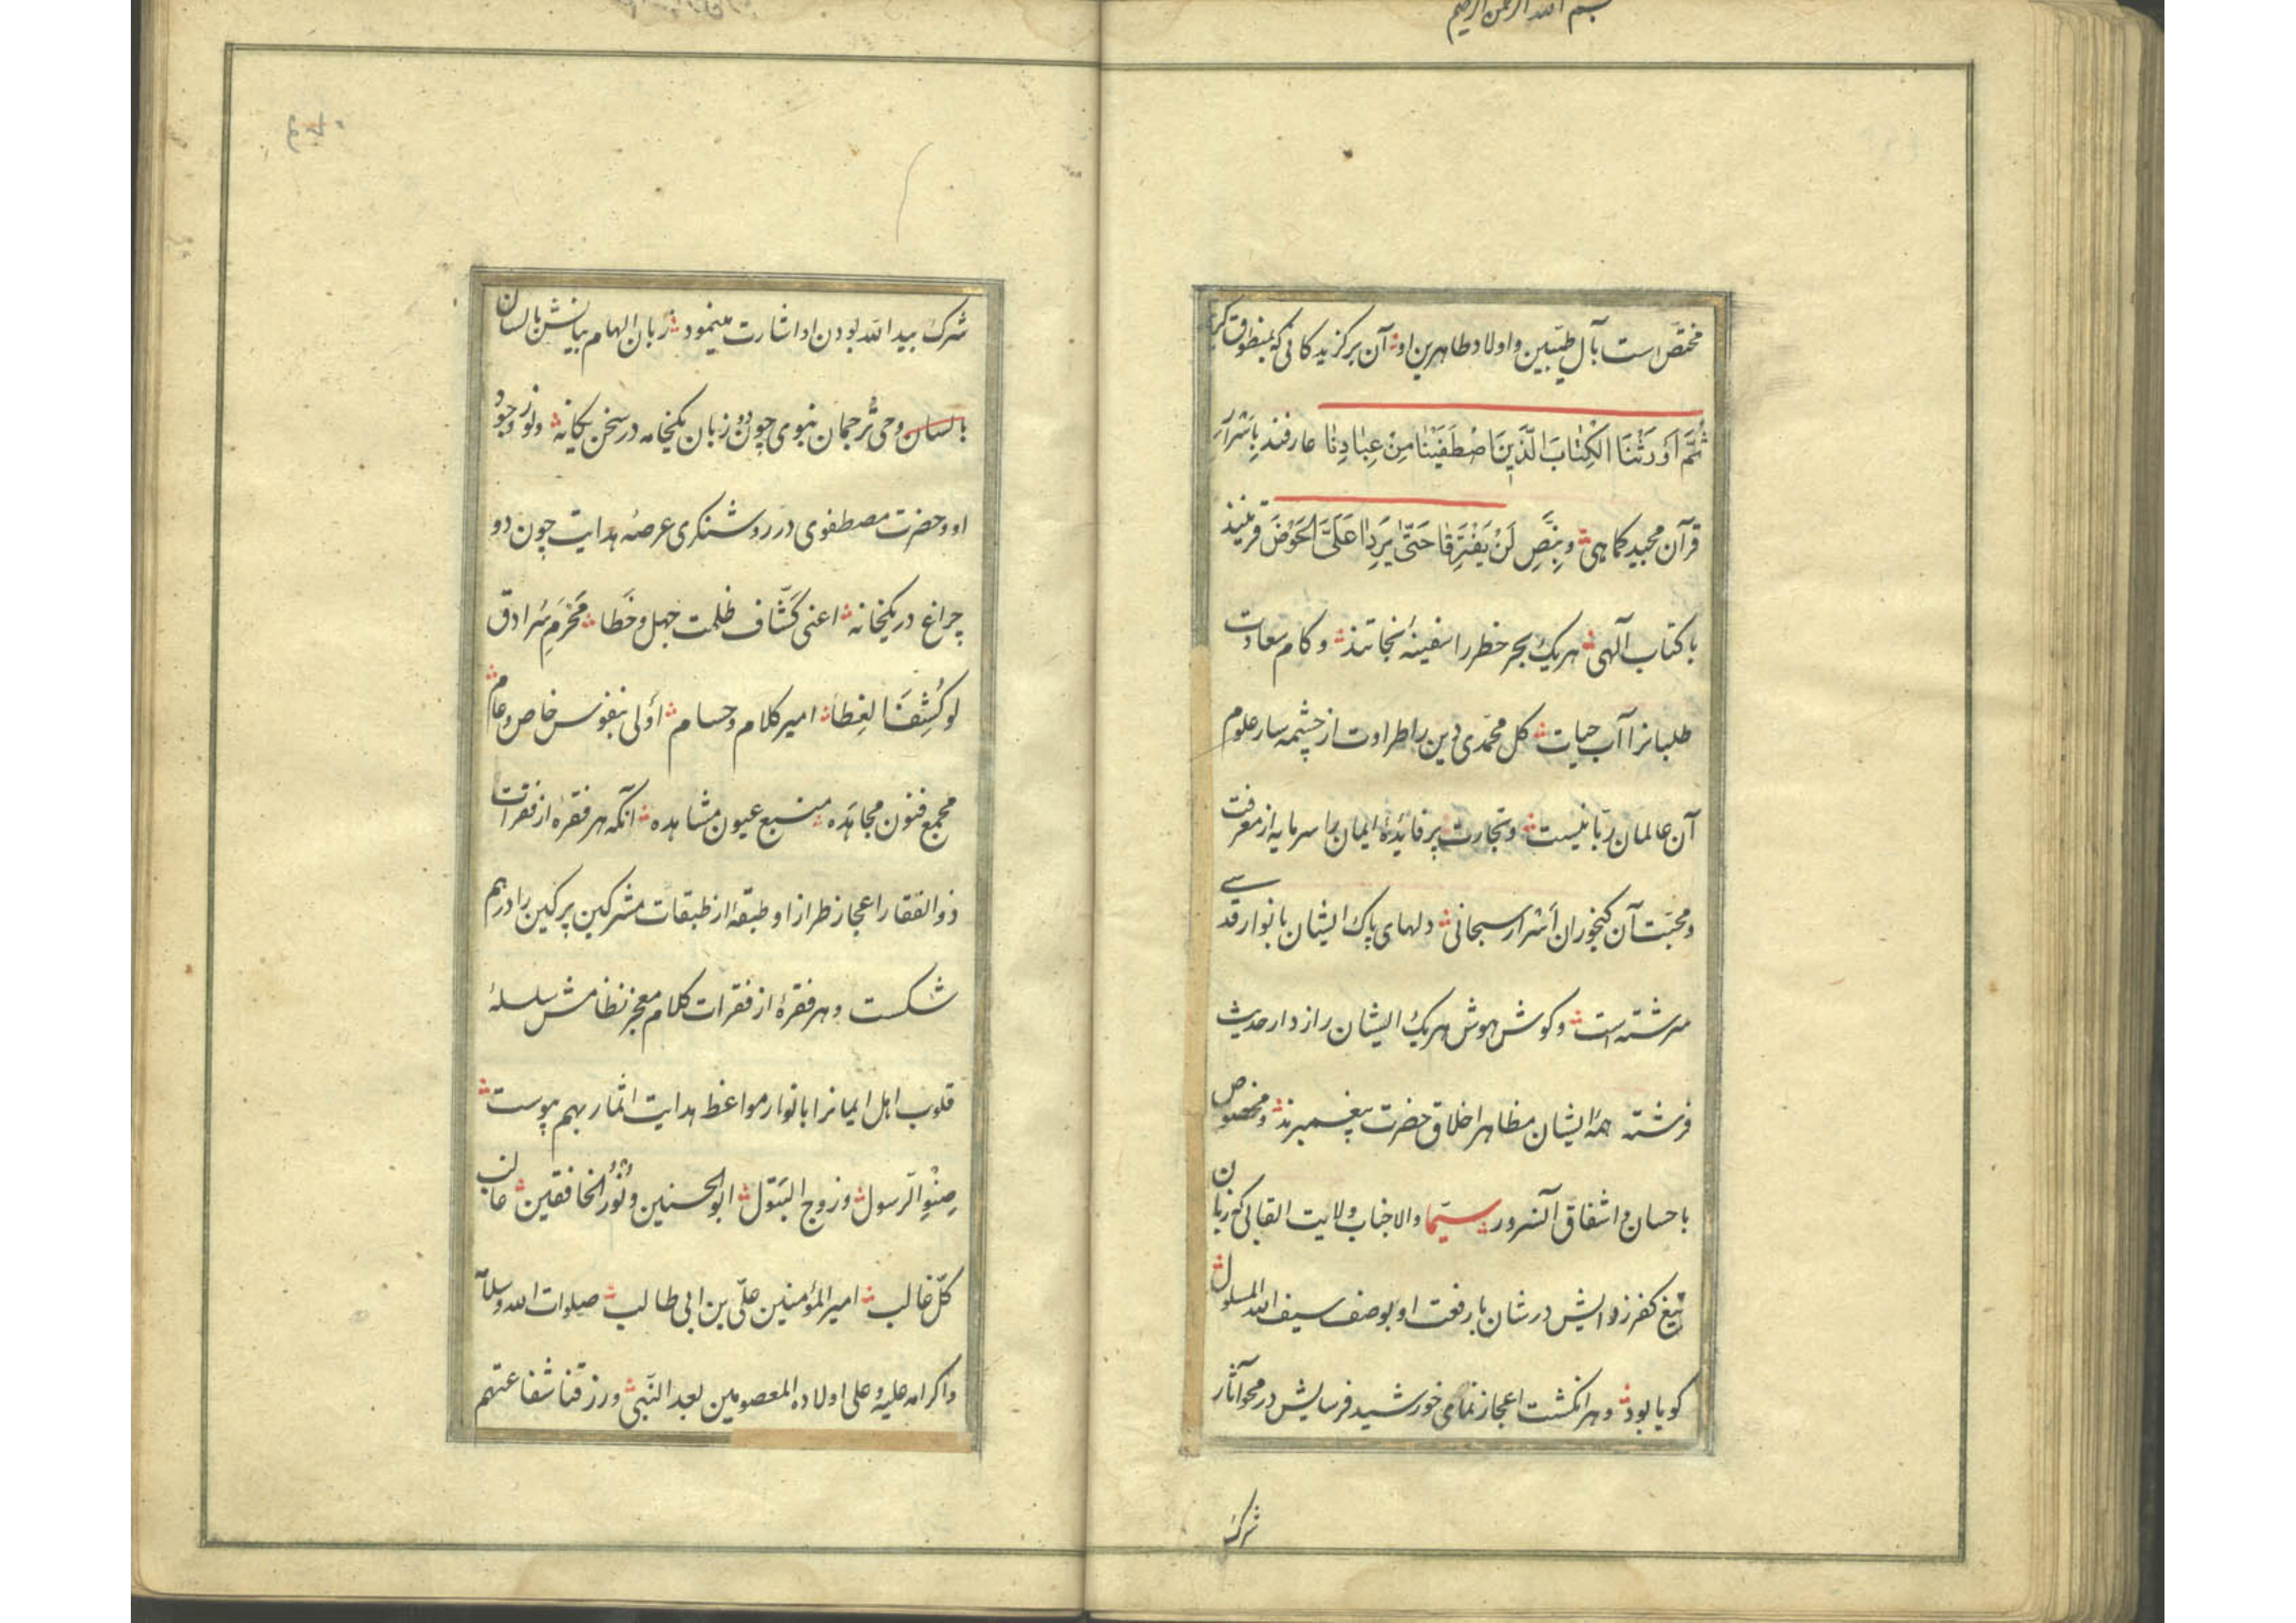 بسم الله الرحمن الرحیم
مختصّ است بآل طیّبین و اولاد طاهرین او آن برکزیدکانی که بمنطوق کریمه
ثُمَّ اَوْرَثْنَا الْکِتٰابَ الَّذِینَ اصْطَفَیْنٰا مِنْ عِبٰادِنٰا عارفند بِاَسْرارِ
قرآن مجید کماهی و بِنَصِّ لَنْ یَفْتَرِقٰا حَتّیٰ یَرِدٰا عَلَیَّ الْحَوْضَ قرینند
با کتاب آلهی هریک بحر خطر را سفینهٔ نجاتند و کام سعادت
طلبانرا آب حیات کل محمّدی دین را طراوت از چشمه سار علوم
آن عالمان ربّانیست و تجارت پرفائدهٔ ایمان را سرمایه از معرفت
و محبّت آن کنجوران اَسْرار سبحانی دلهای پاک ایشان بانوار قدسی
سرشته است و کوش هوش هریک ایشان رازدار حدیث
فرشته همهٔ ایشان مظاهر اخلاق حضرت پیغمبرند و مخصوص
باحسان و اشفاق آنسرور سیّما والاجناب ولایت القابی که زبان
تیغ کفرزدایش در شان با رفعت او بوصف سیف الله المسلول
کویا بود و هر انکشت اعجاز نمای خورشید فرسایش در محو آثار
شرک
شرک بید الله بودن او اشارت مینمود زبان الهام بیانش با لسان
با لسان وحی تُرجمان نبوی چون دو زبان یکخامه در سخن یکانه و نور وجود
او و حضرت مصطفوی در روشنکری عرصهٔ هدایت چون دو
چراغ در یکخانه اعنی کَشّاف ظلمت جهل و خَطا مَحْرَمِ سُرادق
لو کُشِفَ الغِطا امیر کلام و حسام اَولی بنفوس خاص و عام
مجمع فنون مجاهَده منبع عیون مشاهده آنکه هر فقرهٔ از فقرات
ذوالفقار اعجاز طراز او طبقهٔ از طبقات مشرکین پرکین را درهم
شکست و هر فقرهٔ از فقرات کلام معجز نظامش سلسلهٔ
قلوب اهل ایمانرا بانوار مواعظ هدایت اثمار بهم پیوست
صِنْوِ الرّسول و زوج البَتول ابو الحسنین و نُور الخافقین غالب
کلّ غالب امیر المؤمنین علیّ بن ابی طالب صلوات الله و سلامه
و اکرامه علیه و علی اولاده المعصومین بعد النّبی و رزقنا شفاعتهم